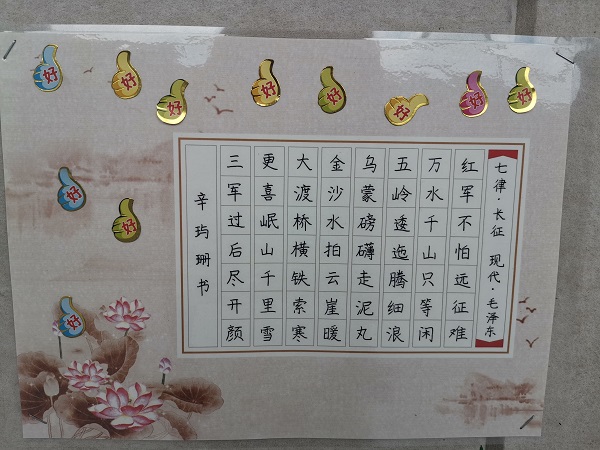 好
好
好
好
好
好
好
好
七律·长征 现代·毛泽东
红军不怕远征难
万水千山只等闲
五岭逶迤腾细浪
乌蒙磅礴走泥丸
金沙水拍云崖暖
大渡桥横铁索寒
更喜岷山千里雪
三军过后尽开颜
辛玙珊书
好
好
好